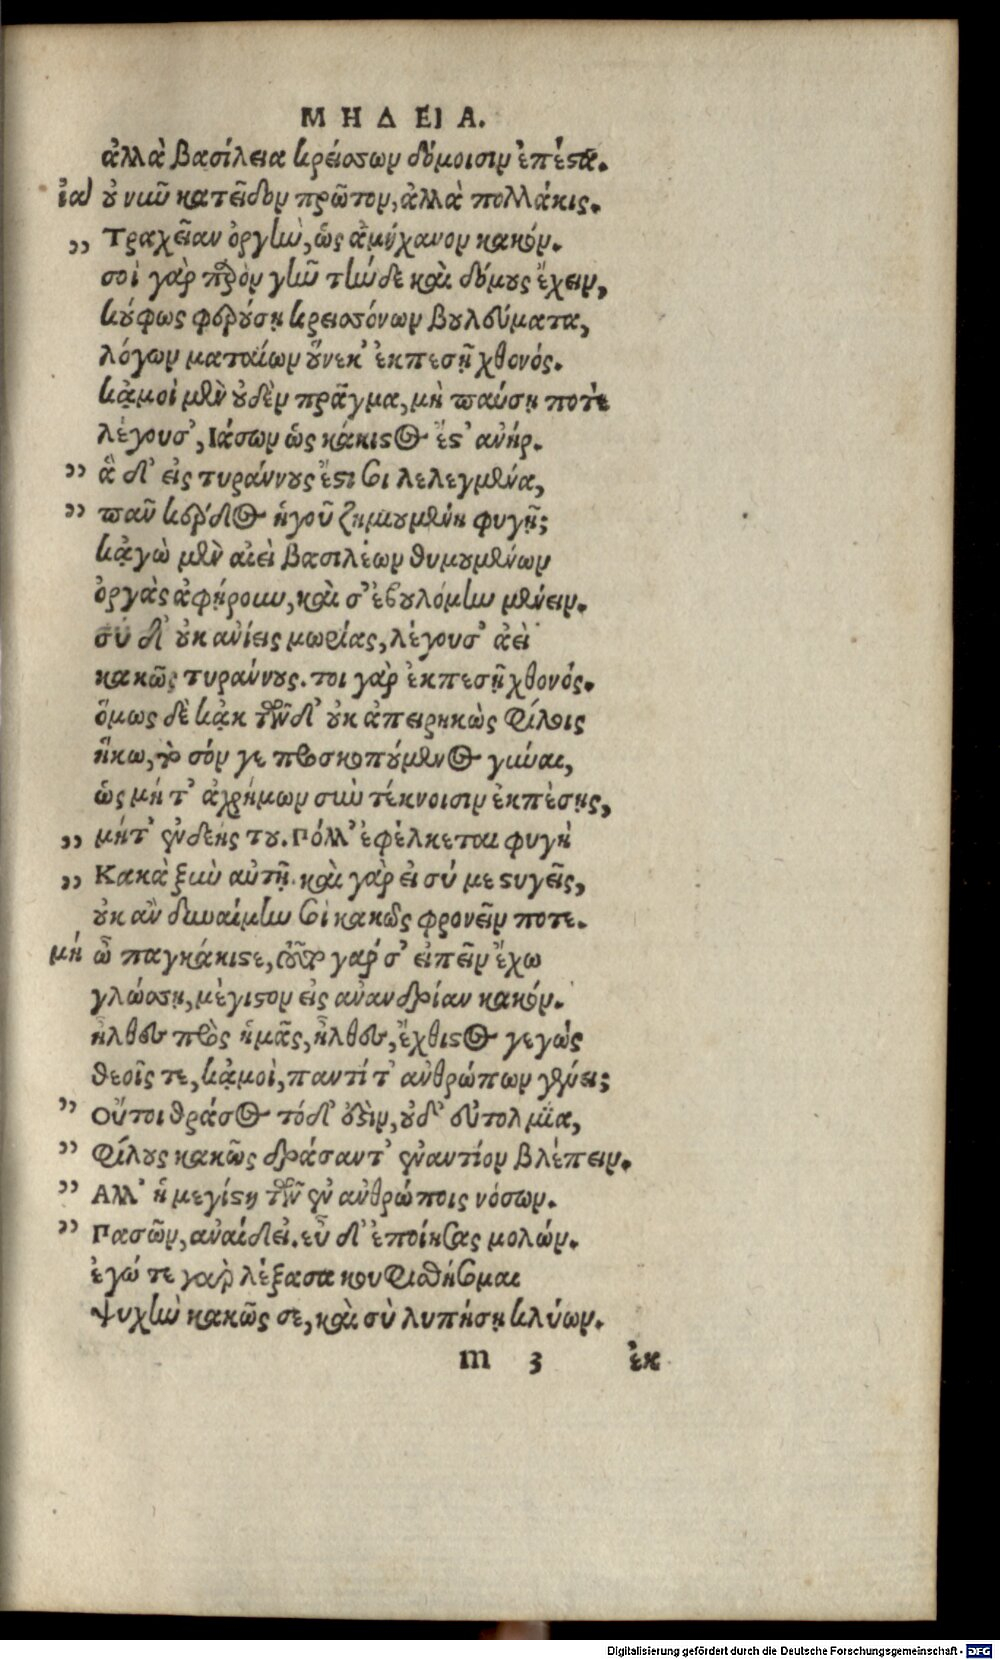 ΜΗΔΕΙΑ.
ἀλλὰ βασίλεια κρείσσων δόμοισιν ἐπέστα.
ἰα) οὐ νῦν κατεῖδον πρῶτον, ἀλλὰ πολλάκις.
,, Τραχεῖαν ὀργὴν, ὡς ἀμήχανον κακόν.
σοὶ γὰρ παρὸν γῆν τήνδε καὶ δόμους ἔχειν,
κούφως φερούσῃ κρεισσόνων βουλεύματα,
λόγων ματαίων οὕνεκ' ἐκπεσῇ χθονός.
κᾀμοὶ μὲν οὐδὲν πρᾶγμα, μὴ παύσῃ ποτὲ
λέγουσ', Ιάσων ὡς κάκιστος ἔστ' ἀνήρ.
,, ἃ δ' εἰς τυράννους ἔστι σοι λελεγμένα,
,, πᾶν κέρδος ἡγοῦ ζημιουμένη φυγῇ;
κᾀγὼ μὲν αἰεὶ βασιλέων θυμουμένων
ὀργὰς ἀφῄρουν, καὶ σ' ἐβουλόμην μένειν.
σὺ δ' οὐκ ἀνίεις μωρίας, λέγουσ' ἀεὶ
κακῶς τυράννους. τοι γὰρ ἐκπεσῇ χθονός.
ὅμως δὲ κᾀκ τῶνδ' οὐκ ἀπειρηκὼς φίλοις
ἥκω, τὸ σόν γε προσκοπούμενος γύναι,
ὡς μήτ' ἀχρήμων σὺν τέκνοισιν ἐκπέσῃς,
,, μήτ' ἐνδεής του. Πόλλ' ἐφέλκεται φυγὴ
,, Κακὰ ξὺν αὐτῇ. καὶ γὰρ εἰ σύ με στυγεῖς,
οὐκ ἂν δυναίμην σοὶ κακῶς φρονεῖν ποτε.
μή ὦ παγκάκιστε, τοῦτο γάρ σ' εἰπεῖν ἔχω
γλώσσῃ, μέγιστον εἰς ἀνανδρίαν κακόν.
ἦλθες πρὸς ἡμᾶς, ἦλθες, ἔχθιστος γεγώς
θεοῖς τε, κᾀμοὶ, παντί τ' ἀνθρώπων γένει;
,, Οὔτοι θράσος τόδ' ἐστὶν, οὐδ' εὐτολμία,
,, Φίλους κακῶς δράσαντ' ἐναντίον βλέπειν.
,, Αλλ' ἡ μεγίστη τῶν ἐν ἀνθρώποις νόσων.
,, Πασῶν, ἀναίδει. εὖ δ' ἐποίησας μολών.
ἐγώ τε γὰρ λέξασα κουφισθήσομαι
Ψυχὴν κακῶς σε, καὶ σὺ λυπήσῃ κλύων.
m 3 ἐκ
Digitalisierung gefördert durch die Deutsche Forschungsgemeinschaft - DFG